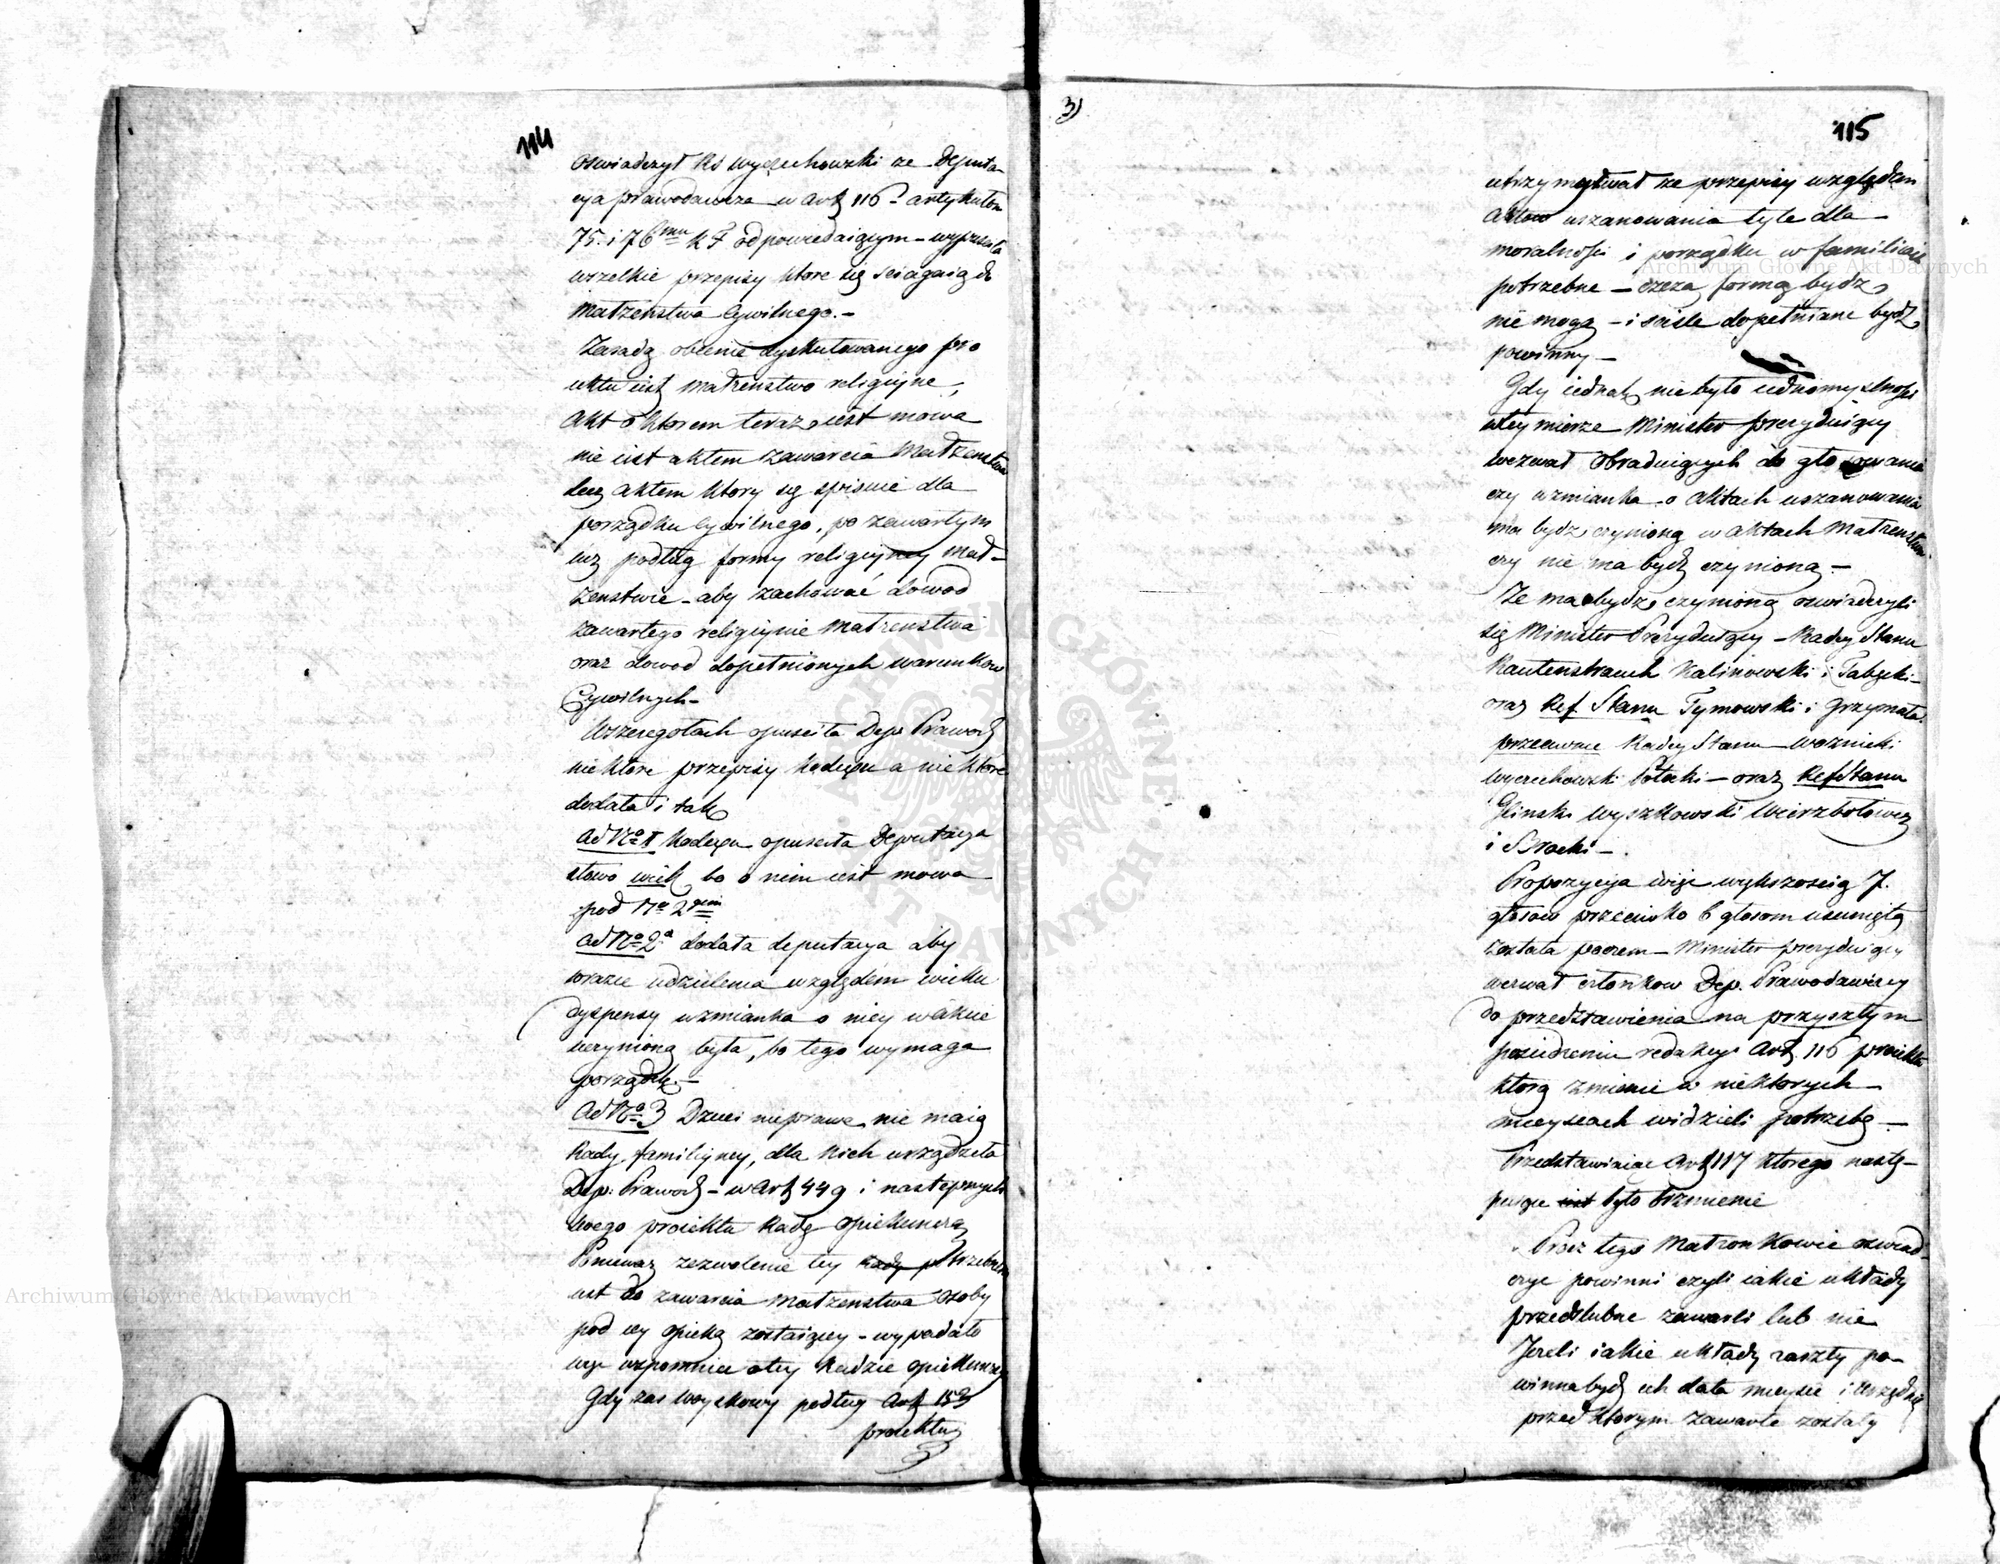 114
oswiadczył RS Wyczechowski ze Deputa-
cya prawodawcza w Art 116 artykułom
75. i 76 K F odpowiadaiącym - wypuściła
wszelkie przepisy ktore się sciągaią do
Małżenstwa Cywilnego. -
Zasadą obecnie dyskutowanego pro
iektu iest małzenstwo religijne,
Akt o ktorem teraz iest mowa
nie iest aktem zawarcia Małzenstwa
lecz aktem ktory się spisuie dla
porządku Cywilnego, po zawartym
iuz podług formy religiyney mał-
zenstwie - aby zachować dowod
zawartego religiynie Małzenstwa
oraz dowod dopełnionych warunkow
Cywilnych -
W szczegołach opuściła Dep: Prawod
niektore przepisy kodexu a niektore
dodała i tak
Ad No 1 kodexu opusciła Deputacya
słowo wiek bo o nim iest mowa
pod No 2
Ad No 2 dodała deputacya aby
w razie udzielenia względem wieku
dyspensy wzmianka o niey w akcie
uczynioną była, bo tego wymaga
porządek. -
Ad No 3 Dzieci nieprawe nie maią
Rady familijney, dla nich urządziła
Dep: Prawod - w Art 449 i następnych
swego proiektu Radę Opiekunczą
Poniewaz zezwolenie tey Rady potrzebnem
iest do zawarcia Małzenstwa Osoby
pod iey opieką zostaiącey - wypadało
więc wspomnieć o tey Radzie opiekunczey
Gdy zas Woyskowy podług Art 153
proiektu
3)
115
utrzymywał ze przepisy względem
Aktow uszanowania tyle dla
moralności i porządku w familiach
potrzebne - czczą formą bydz
nie mogą - i scisle dopełniane bydź
powinny -
Gdy iednak nie było iednomyslności
w tey mierze Minister prezyduiący
wezwał Obraduiących do głosowania
czy wzmianka o Aktach uszanowania
ma bydz czynioną w aktach Małzenstwa
czy nie ma bydź czynioną -
Ze ma bydz czynioną oswiadczyli
się Minister Prezyduiący - Radcy Stanu
Rautenstrauch Kalinowski i
oraz Ref. Stanu Tymowski i Grzymała.
przeciwnie Radcy Stanu Woznicki
Wyczechowski Potocki - oraz Ref Stanu
Glinski Wyszkowski Wierzbołowicz
i
Propozycya więc większoscią 7.
głosow przeciwko 6 głosom usuniętą
została poczem - Minister prezyduiący
wezwał członkow Dep. Prawodawczey
do przedstawienia na przyszłym
posiedzeniu redakcyi Art 116 proiektu
ktorą zmienić w niektorych -
mieyscach widzieli potrzebę -
Przedstawiaiąc Art 117 ktorego nastę-
puiące iest było brzmienie
Procz tego Małzonkowie oswiad-
czyć powinni czyli iakie układy
przedslubne zawarli lub nie
Jezeli iakie układy zaszły po-
winna bydź ich data mieysce i Urzędnik
przed ktorym zawarte zostały